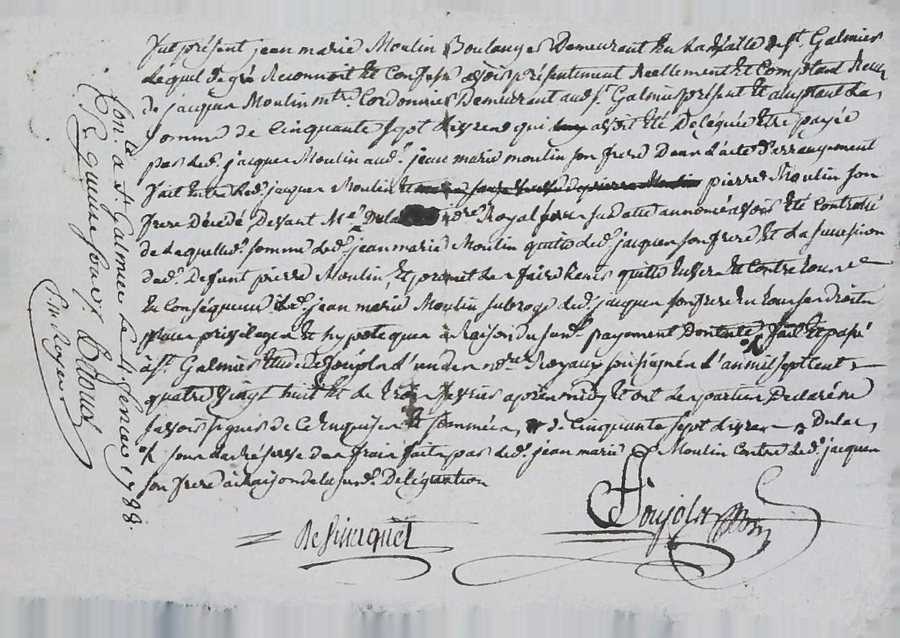 Fut présent jean marie Moulin Boulanger Demeurant En La Ville de St. Galmier
Lequel de gré Reconnoit Et Confesse avoir présentement Reellement Et Comptant Receu
De jacques Moulin mtre. Cordonnier Demeurant aud. St. Galmier présent Et aceptant La
somme de Cinquante sept Livres qui avoit été Deléguée Etre payée
par led. jacques Moulin aud. jean marie moulin son frere Dans L'acte D'arrangement
fait Entre Led. jacques Moulin Et pierre Moulin son
frere Décédé Devant Me. Dulac Nre. Royal sous sa datte annoncé avoir été Controllé
De Laquelle d. somme Led. jean marie Moulin quitte Led. jacques son frere Et La succession
Dud. Defunt pierre Moulin, Et promet Les faire tenir quitte Envers Et Contre tous
En Conséquence Led. jean marie Moulin subroge Led. jacques son frere En tous ses droits
privileges Et hypoteques a Raison du susd. payement Dont acte fait Et passé
à St. Galmier Etude De poujolat L'un des nres. Royaux soussignés L'an mil sept cent
quatre Vingt huit Et Le trois fevrier après midy Et ont Les parties Declaré ne
savoir signer De Ce Enquises Et sommées, De Cinquante sept Livres Dulac
sous La Reserve Des frais faits par Led. jean marie Moulin Contre Led. jacques
son frere à Raison de La susd. Délégation
Poujolat
Con. lé a St. Galmier Le 4 fevrier 1788
R. quinze sous